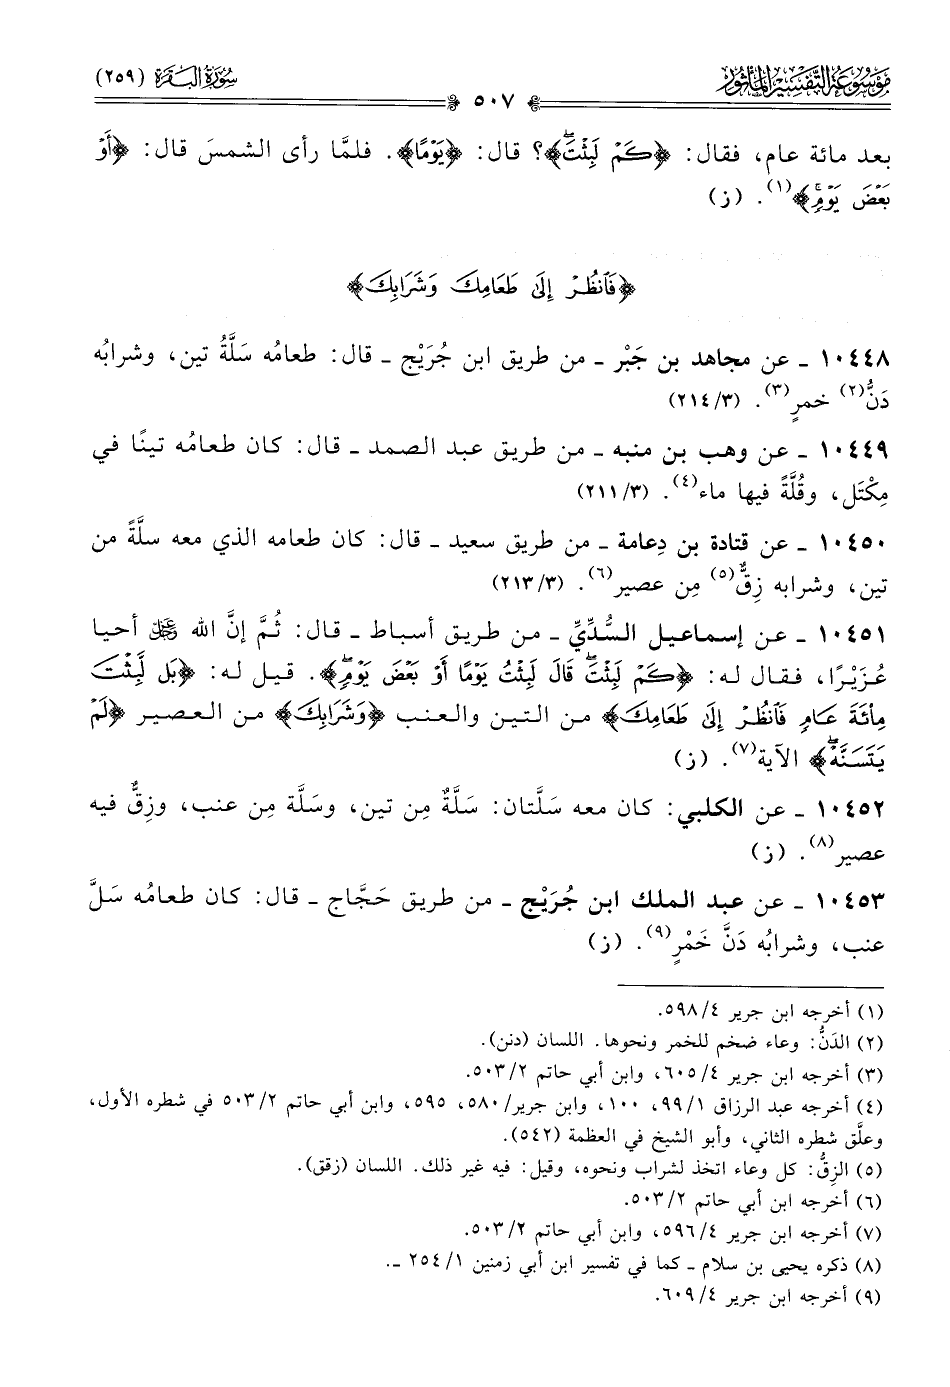 مَوْسُوعَةُ التَّفْسِيْرِ المَأْثُور
سُورَةُ البَقَرَة (٢٥٩)
٥٠٧
بعد مائة عام، فقال: ﴿كَمْ لَبِثْتَۖ﴾؟ قال: ﴿يَوْمًا﴾. فلمَّا رأى الشمسَ قال: ﴿أَوْ
بَعْضَ يَوْمٍۚ﴾(١). (ز)
﴿فَٱنظُرْ إِلَىٰ طَعَامِكَ وَشَرَابِكَ﴾
١٠٤٤٨ ـ عن مجاهد بن جَبْر ـ من طريق ابن جُرَيْج ـ قال: طعامُه سَلَّةُ تين، وشرابُه
دَنُّ(٢) خمرٍ(٣). (٣/٢١٤)
١٠٤٤٩ ـ عن وهب بن منبه ـ من طريق عبد الصمد ـ قال: كان طعامُه تينًا في
مِكْتَل، وقُلَّةً فيها ماء(٤). (٣/٢١١)
١٠٤٥٠ ـ عن قتادة بن دِعامة ـ من طريق سعيد ـ قال: كان طعامه الذي معه سلَّةً من
تين، وشرابه زِقٌّ(٥) مِن عصير(٦). (٣/٢١٣)
١٠٤٥١ ـ عن إسماعيل السُّدِّيِّ ـ من طريق أسباط ـ قال: ثُمَّ إنَّ الله ﷿ أحيا
عُزَيْرًا، فقال له: ﴿كَمْ لَبِثْتَۖ قَالَ لَبِثْتُ يَوْمًا أَوْ بَعْضَ يَوْمٍۖ﴾. قيل له: ﴿بَل لَّبِثْتَ
مِائَةَ عَامٍ فَٱنظُرْ إِلَىٰ طَعَامِكَ﴾ من التين والعنب ﴿وَشَرَابِكَ﴾ من العصير ﴿لَمْ
يَتَسَنَّهْۖ﴾ الآية(٧). (ز)
١٠٤٥٢ ـ عن الكلبي: كان معه سَلَّتان: سَلَّةٌ مِن تين، وسَلَّة مِن عنب، وزِقٌّ فيه
عصير(٨). (ز)
١٠٤٥٣ ـ عن عبد الملك ابن جُرَيْج ـ من طريق حَجَّاج ـ قال: كان طعامُه سَلَّ
عنب، وشرابُه دَنَّ خَمْرٍ(٩). (ز)
(١) أخرجه ابن جرير ٤/٥٩٨.
(٢) الدَنُّ: وعاء ضخم للخمر ونحوها. اللسان (دنن).
(٣) أخرجه ابن جرير ٤/٦٠٥، وابن أبي حاتم ٢/٥٠٣.
(٤) أخرجه عبد الرزاق ١/٩٩، ١٠٠، وابن جرير/٥٨٠، ٥٩٥، وابن أبي حاتم ٢/٥٠٣ في شطره الأول،
وعلَّق شطره الثاني، وأبو الشيخ في العظمة (٥٤٢).
(٥) الزِقُّ: كل وعاء اتخذ لشراب ونحوه، وقيل: فيه غير ذلك. اللسان (زقق).
(٦) أخرجه ابن أبي حاتم ٢/٥٠٣.
(٧) أخرجه ابن جرير ٤/٥٩٦، وابن أبي حاتم ٢/٥٠٣.
(٨) ذكره يحيى بن سلام ـ كما في تفسير ابن أبي زمنين ١/٢٥٤ ـ.
(٩) أخرجه ابن جرير ٤/٦٠٩.